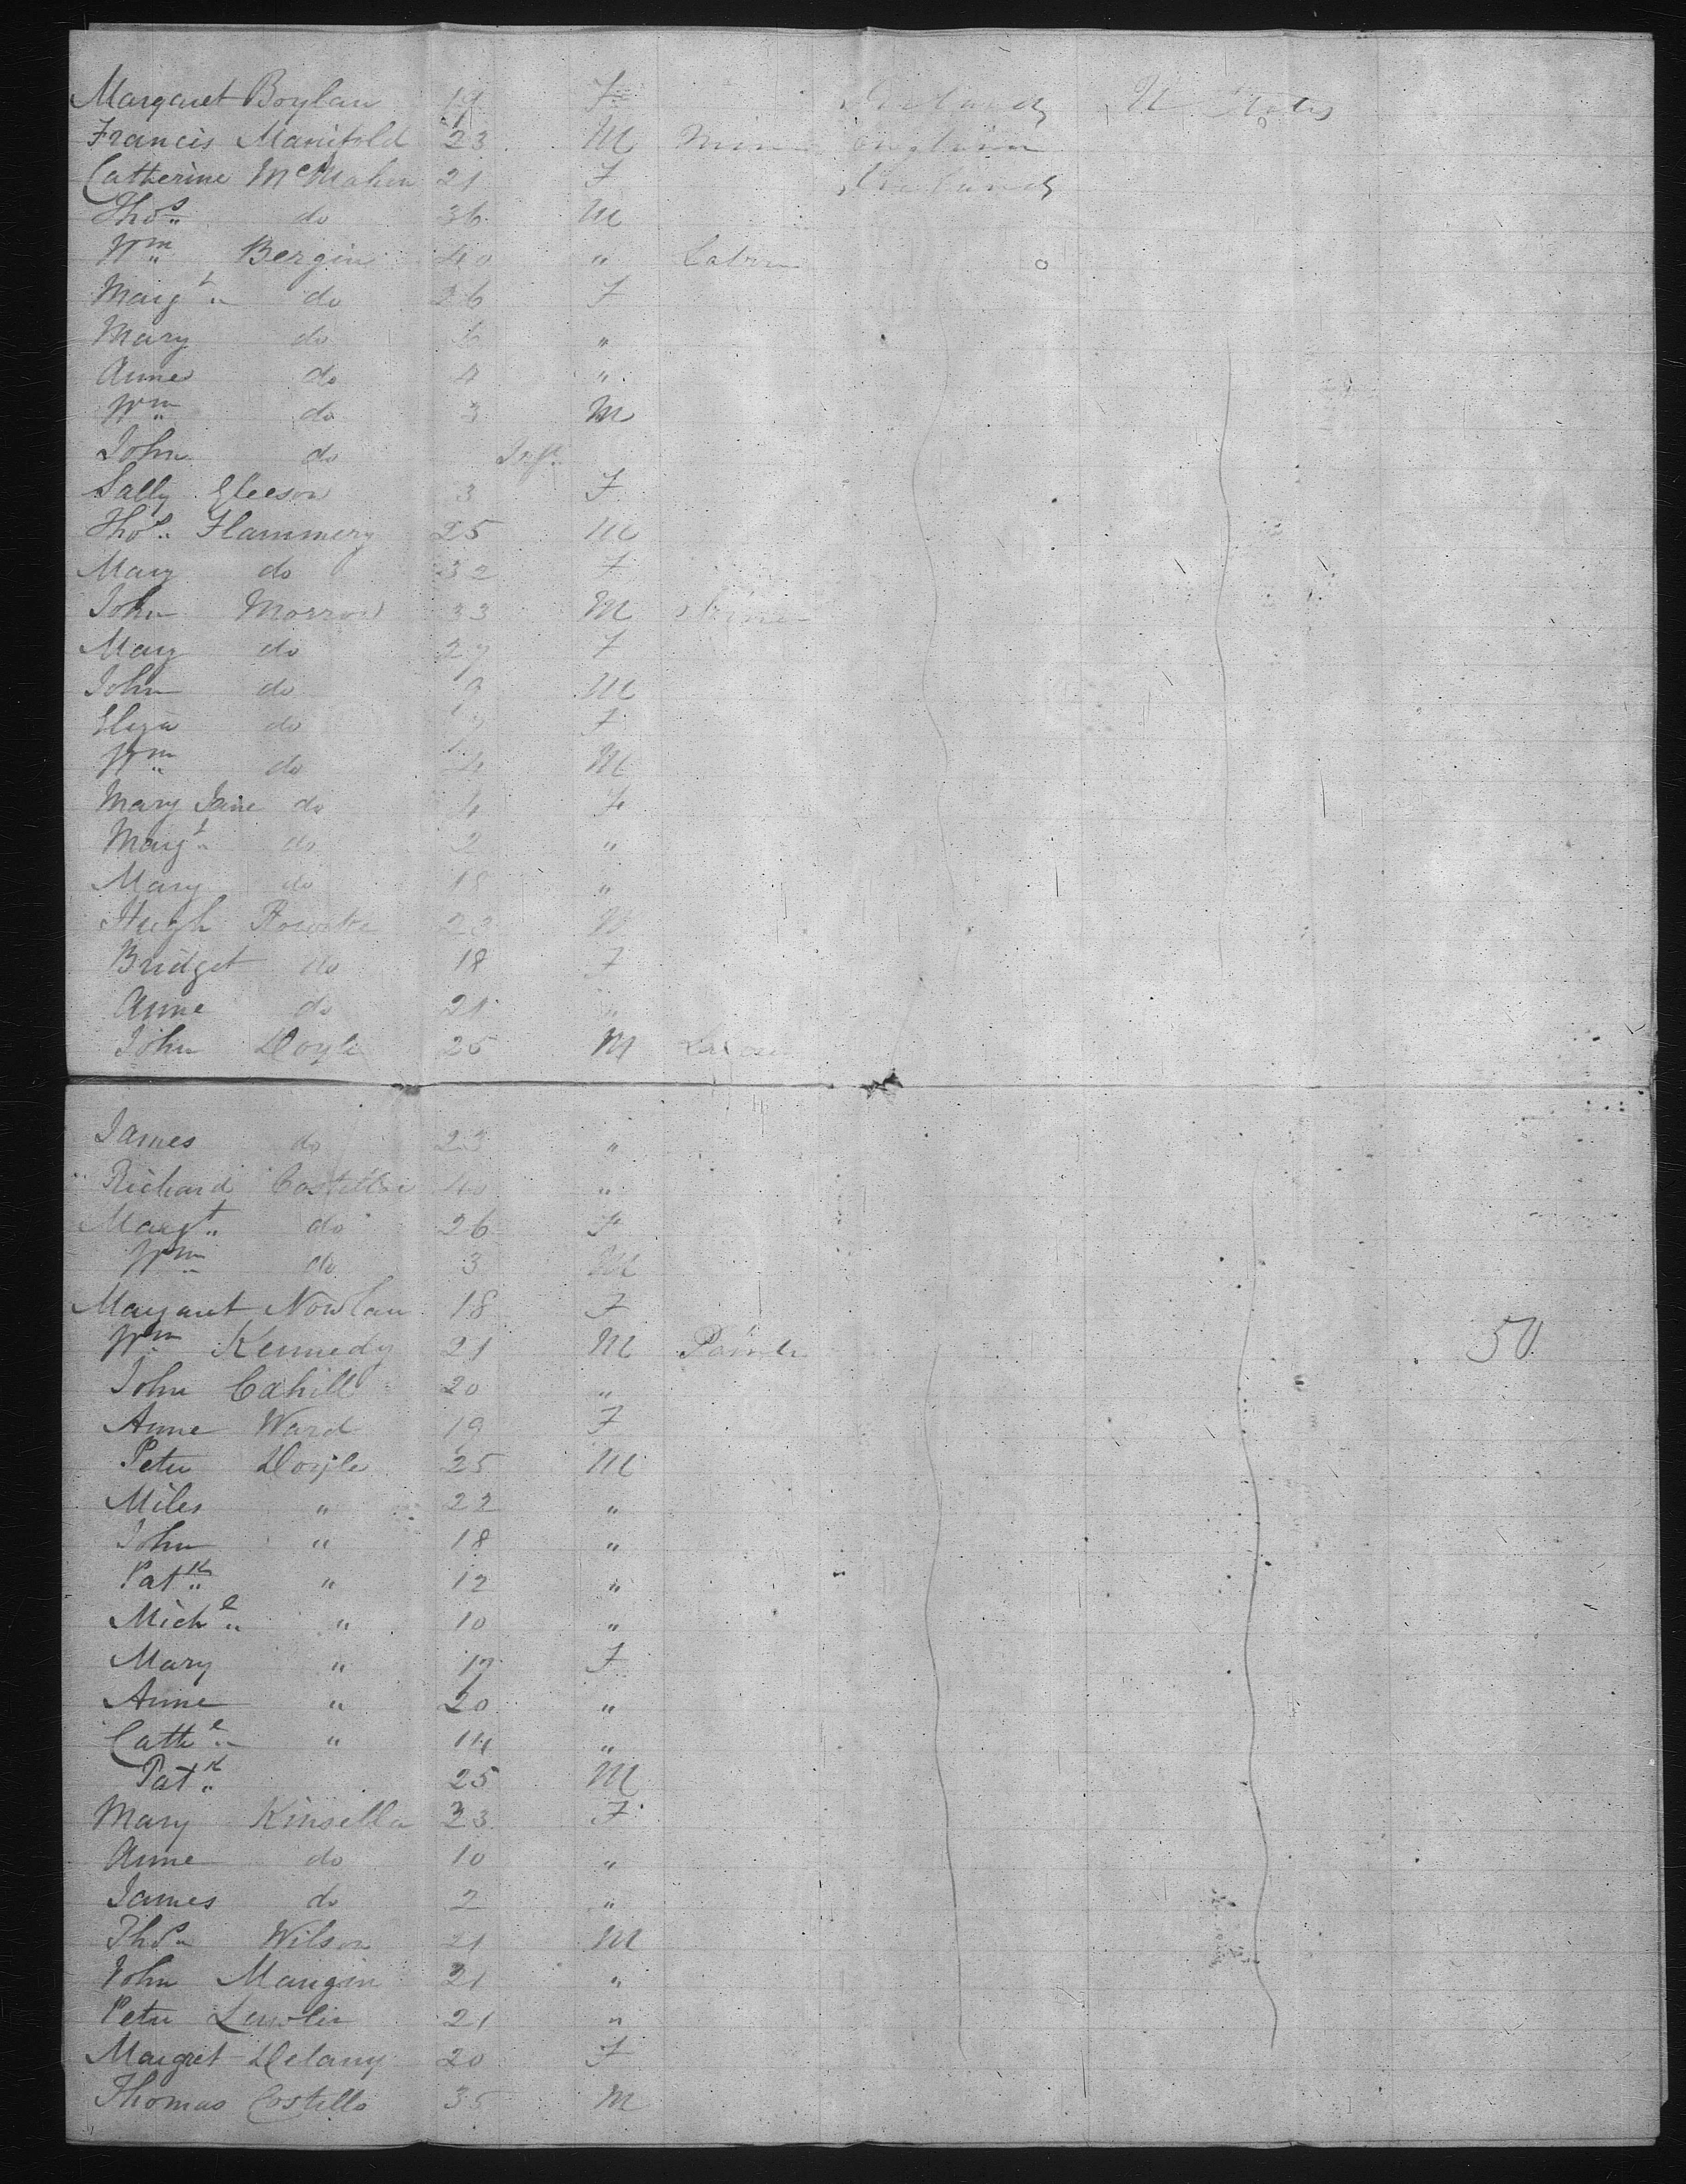 Margaret Boylan 19 F Ireland U States
Francis Manifold 23 M Miner England
Catherine McMahon 21 F Ireland
Thos do 36 M
Wm Bergin 40 " Labour
Margt do 26 F
Mary do "
Anne do 4 "
Wm do 3 M
John do Inft
Sally Gleeson 3 F
Thos Flammery 25 M
Mary do 32 F
John Morrow 33 M
Mary do 27 F
John do 9 M
Eliza do 7 F
Wm do 4 M
Mary Jane do 4 F
Margt do 2 "
Mary do 18 "
Hugh 23 M
Bridget do 18 F
Anne do 21 "
John Doyle 25 M
James do 23 "
Richard Costello 40 "
Margt do 26 F
Wm do 3 M
Margaret Nowlan 18 F
Wm Kennedy 21 M Painter 50
John Cahill 20 "
Anne Ward 19 F
Peter Doyle 25 M
Miles " 22 "
John " 18 "
Patk " 12 "
Michl " 10 "
Mary " 17 F
Anne " 20 "
Cathe " 14 "
Patk 25 M
Mary Kinsella 23 F
Anne do 10 "
James do 2 "
Thos Wilson 21 M
John Mangin 21 "
Peter Lawler 21 "
Margret Delany 20 F
Thomas Costello 35 M